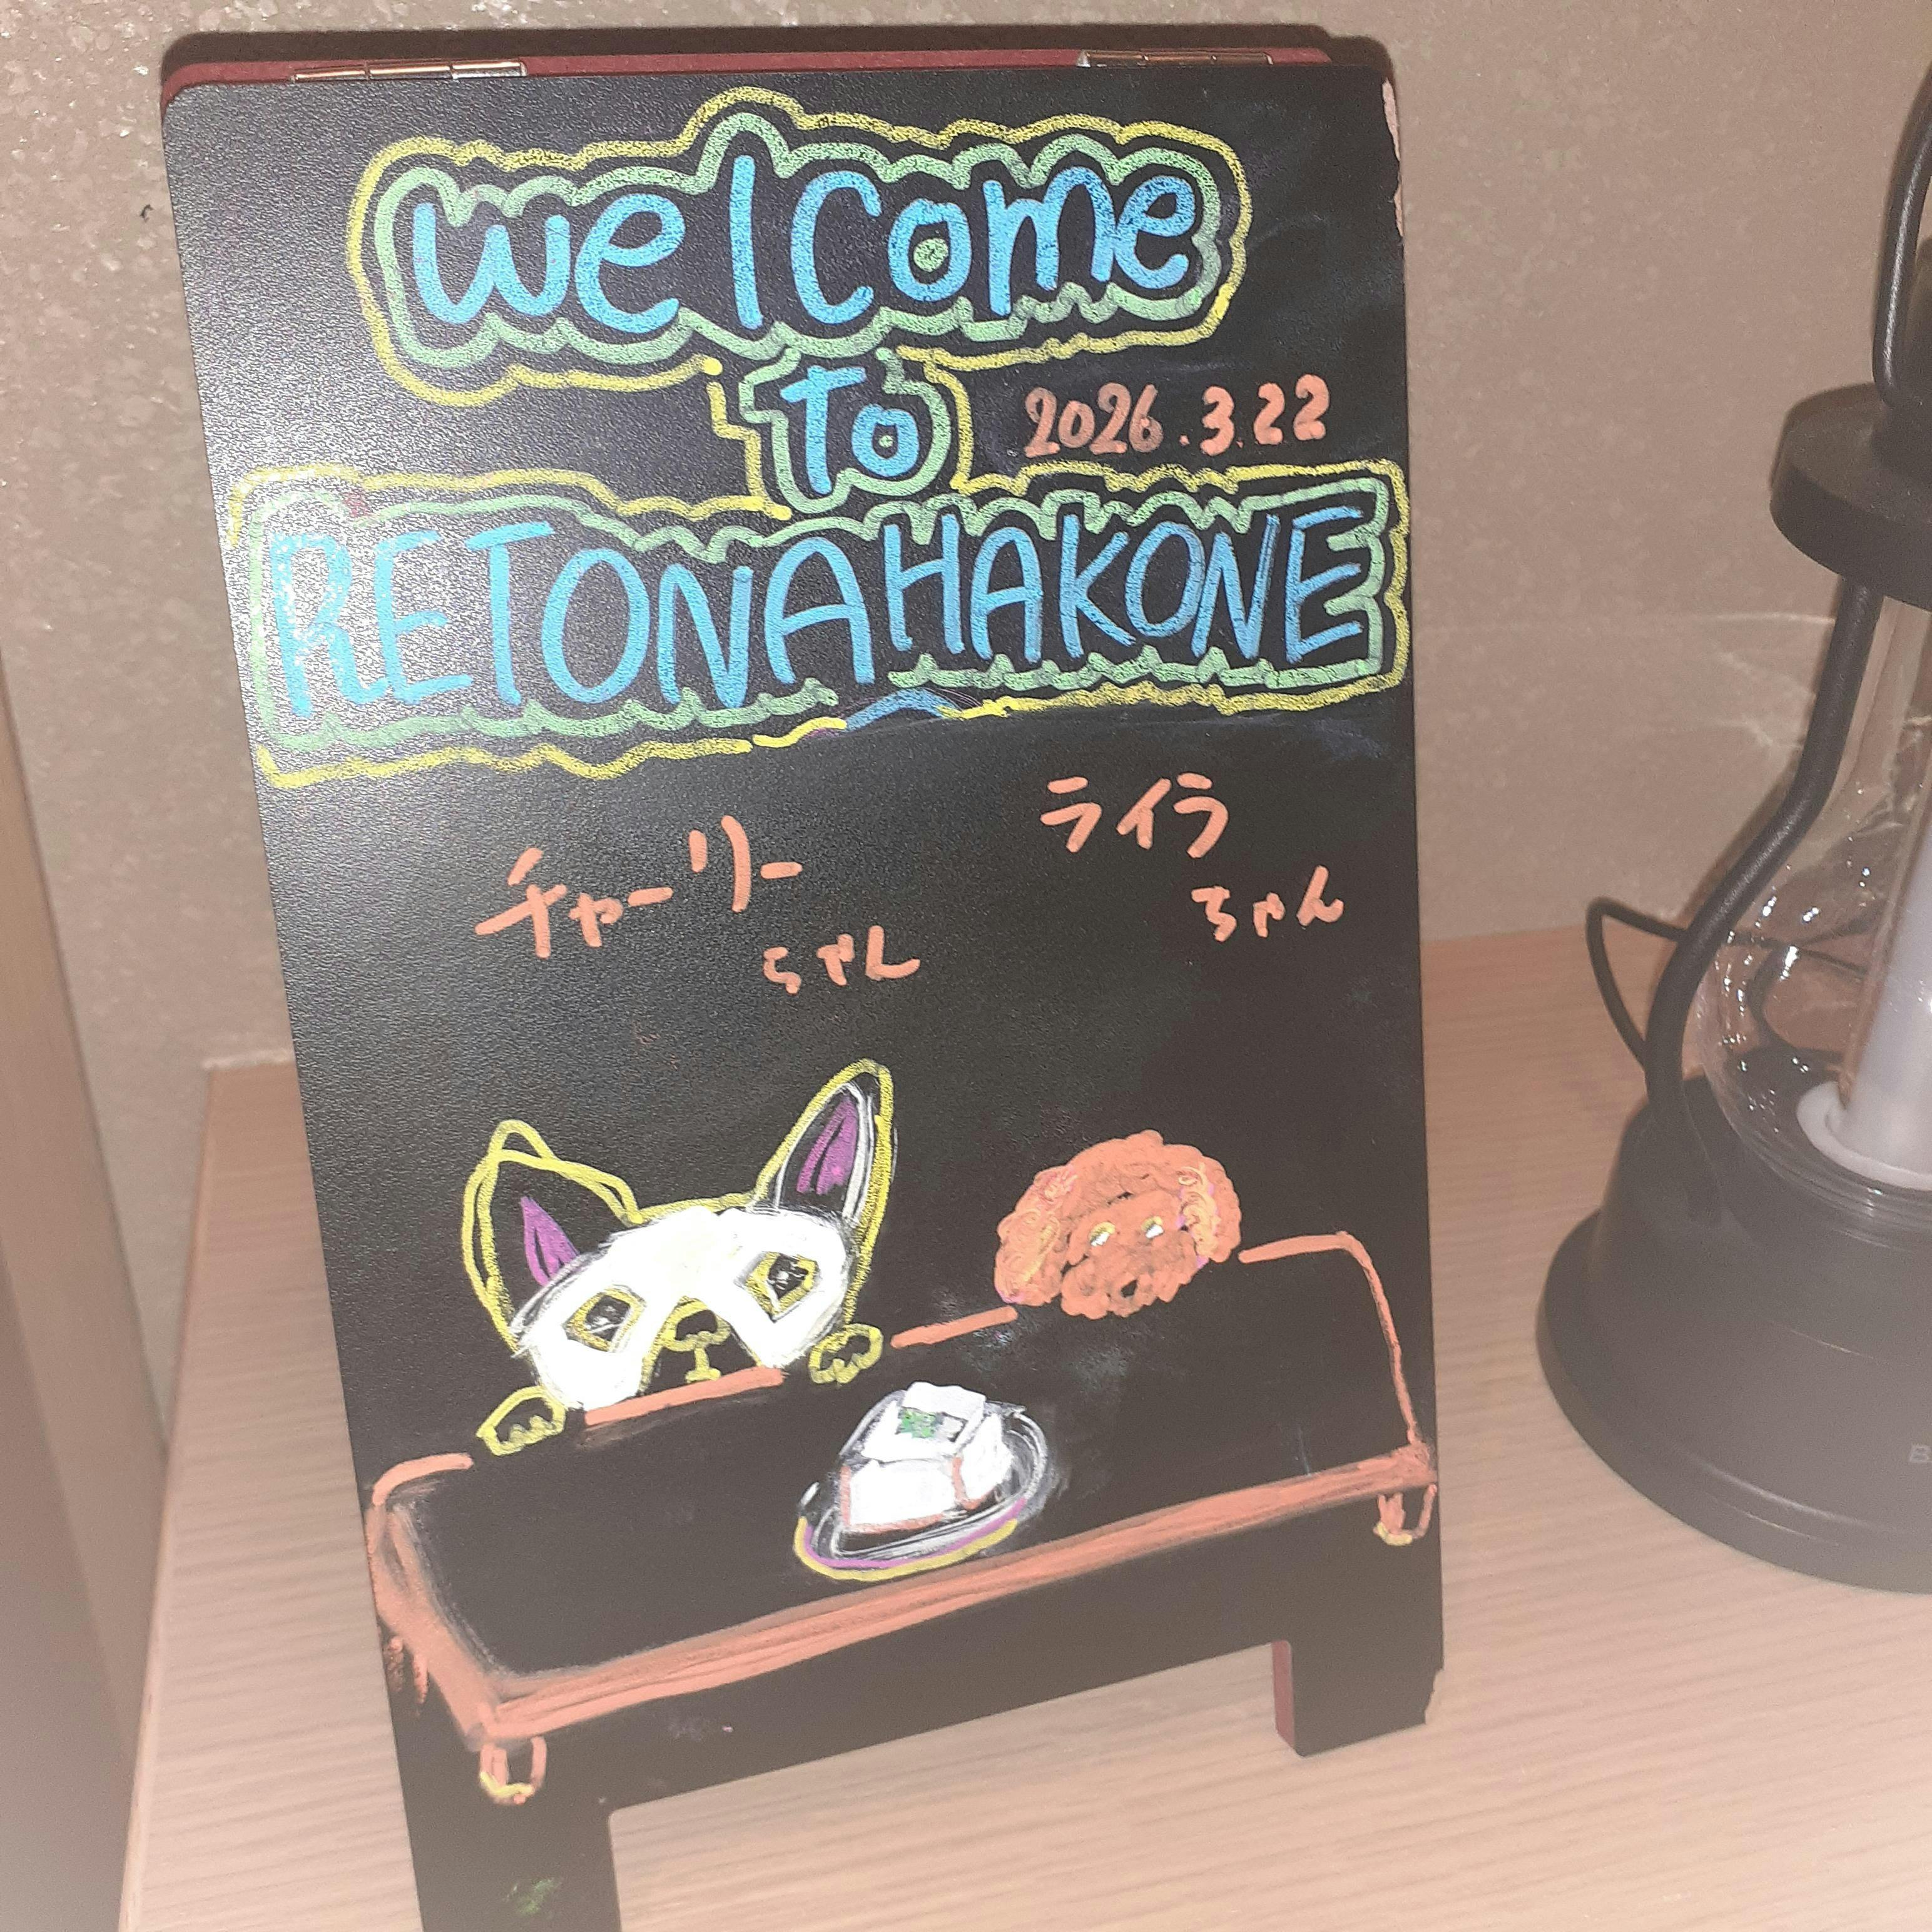 welcome
to
2026.3.22
RETONAHAKONE
チャーリー
ちゃん
ライラ
ちゃん